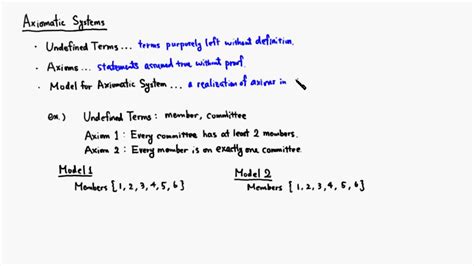 Axiomatic Systems
· Undefined Terms ... terms purposely left without definition.
· Axioms ... statements assumed true without proof.
· Model for Axiomatic System ... a realization of axioms in
ex.) Undefined Terms : member, committee
Axiom 1 : Every committee has at least 2 members.
Axiom 2 : Every member is on exactly one committee.
Model 1
Members {1, 2, 3, 4, 5, 6}
Model 2
Members {1, 2, 3, 4, 5, 6}